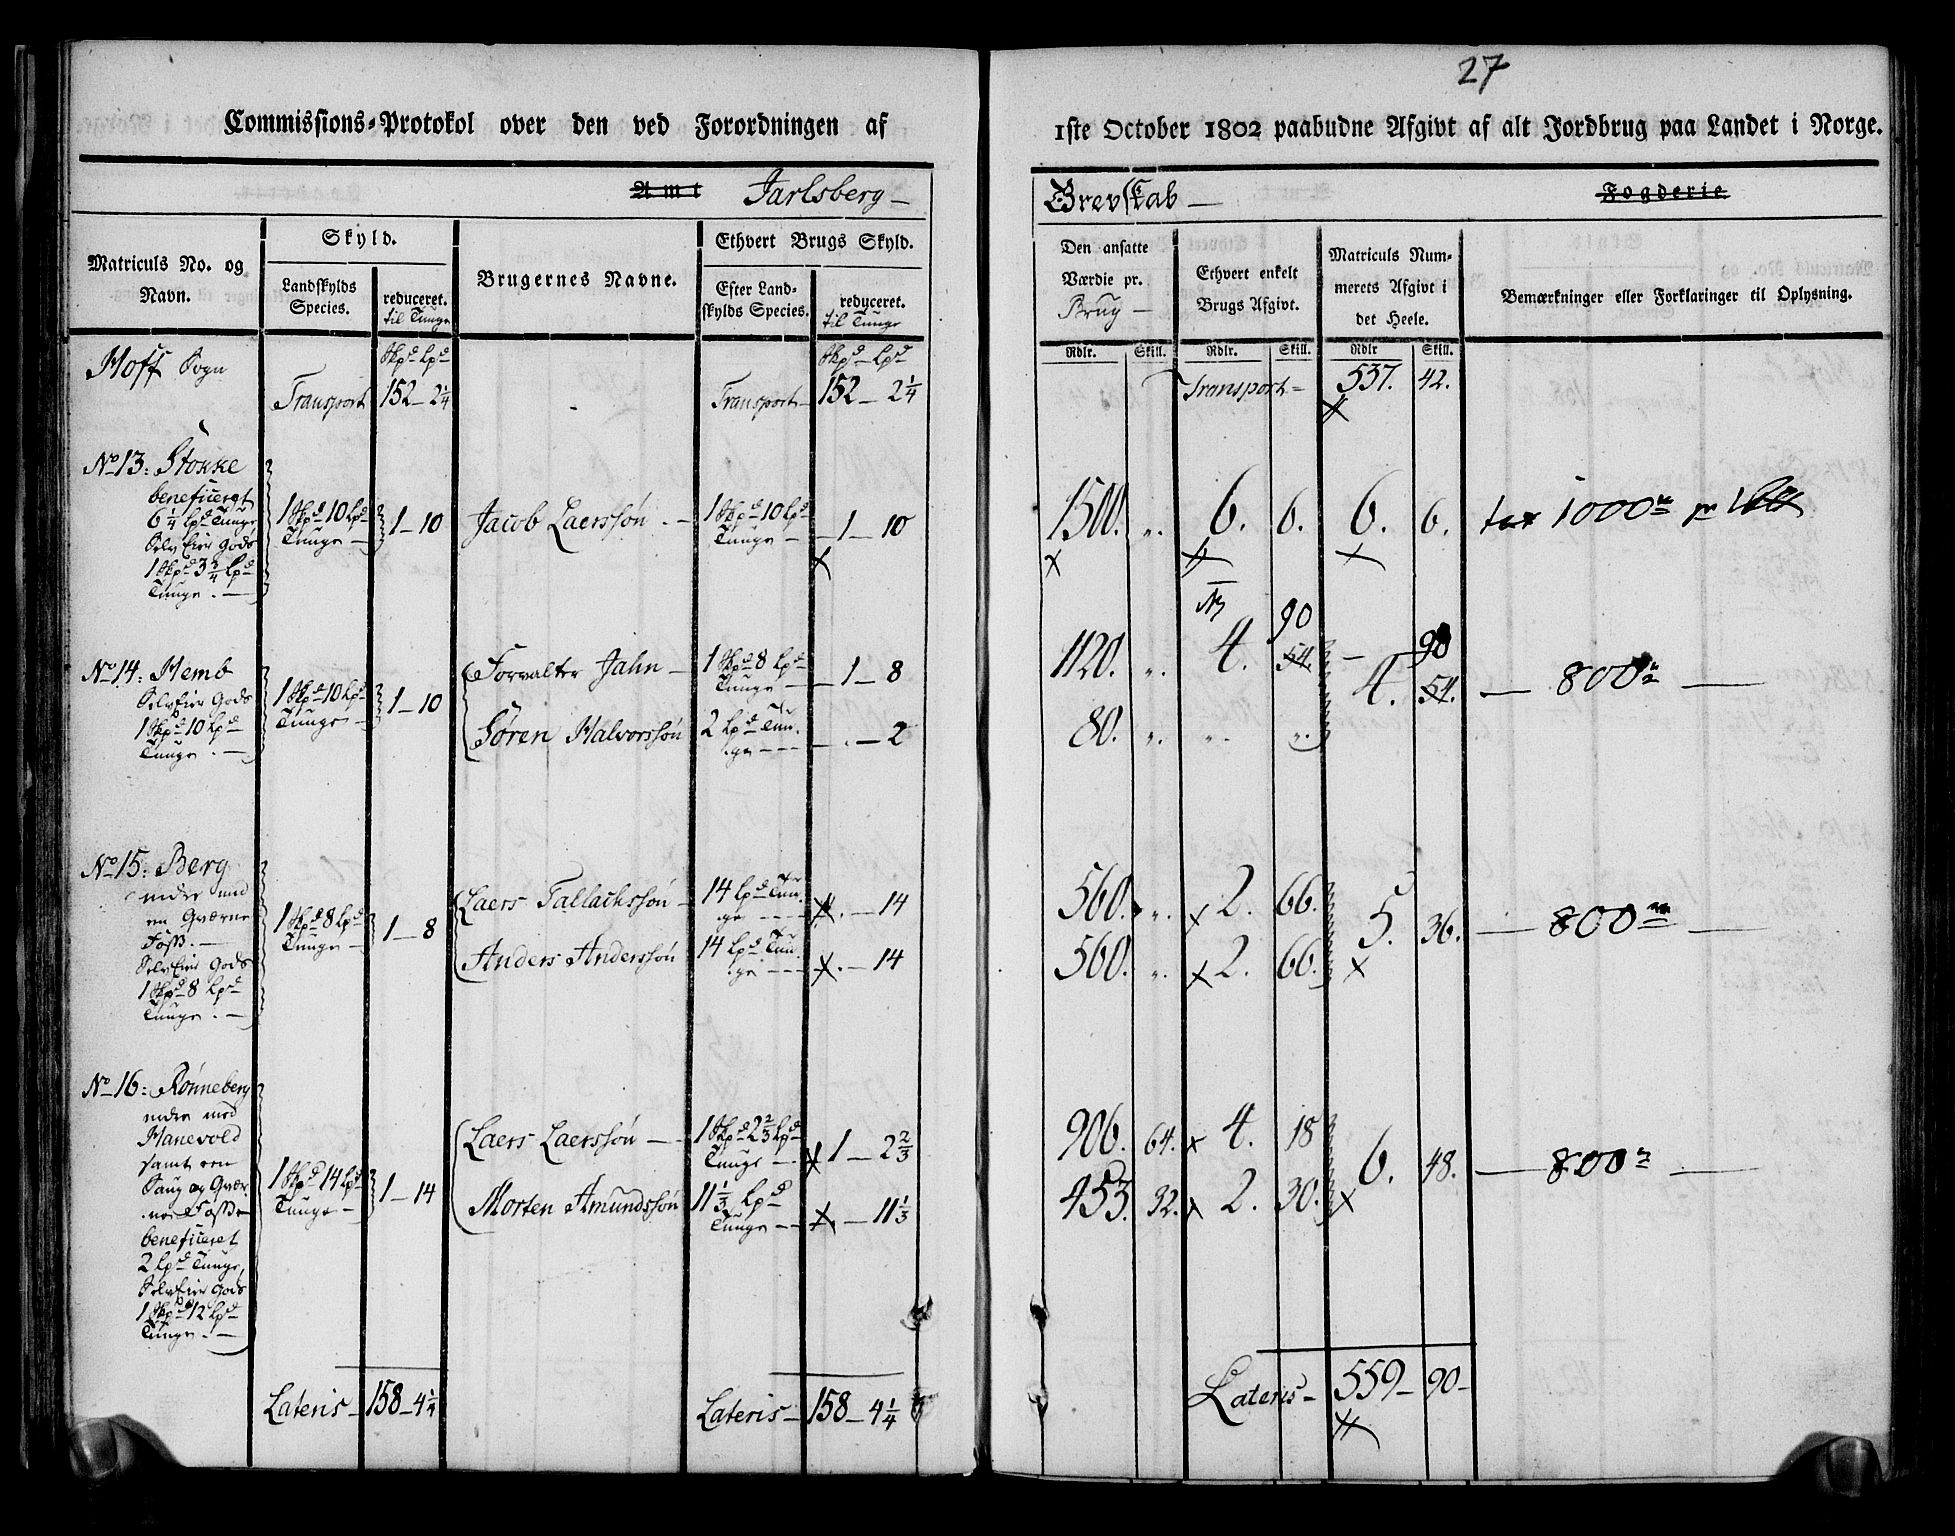 27
Commissions-Protokol over den ved Forordningen af
1ste October 1802 paabudne Afgivt af alt Jordbrug paa Landet i Norge.
Amt Jarlsberg —
Grevskab — Fogderie
Matriculs No. og Navn.
Skyld.
Landskylds Species.
reduceret. til Tunge
Brugernes Navne.
Ethvert Brugs Skyld.
Efter Landskylds Species.
reduceret. til Tunge
Den ansatte Værdie pr. Brug —
Ethvert enkelt Brugs Afgivt.
Matriculs Nummerets Afgivt i det Heele.
Bemærkninger eller Forklaringer til Oplysning.
Rdlr. Skill. Rdlr. Skill. Rdlr Skill.
Hoff Sogn Skpd Lpd Skpd Lpd
Transport 152 — 2 1/4 Transport — 152 — 2 1/4 Transport — 537. 42.
No 13: Stokke
beneficeret
6 1/4 Lpd Tunge
SelvEier Gods
1 Skpd 3 3/4 Lpd
Tunge . —
1 Skpd 10 Lpd
Tunge —
1 — 10
Jacob Laerssøn . —
1 Skpd 10 Lpd
Tunge —
1 — 10
1500. „. 6. 6. 6. 6. tax 1000
No 14: Hemb
SelvEier Gods
1 Skpd 10 Lpd
Tunge . —
1 Skpd 10 Lpd
Tunge —
1 — 10
Forvalter Jahn —
1 Skpd 8 Lpd
Tunge —
— 1 — 8
1120. „. 4. 54. 90
4. 54. 90 — 800 —
Søren Halvorssøn
2 Lpd Tun-
ge — — —
— . — 2
80. „. „. „.
No 15: Berg
nedre med
en Qværne
Foss. —
SelvEier Gods
1 Skpd 8 Lpd
Tunge . —
1 Skpd 8 Lpd
Tunge —
1 — 8
Laers Tallachssøn —
14 Lpd Tun-
ge — — —
. — 14
560. „. 2. 66.
5. 36. — 800 —
Anders Anderssøn
14 Lpd Tun-
ge — — —
. — 14
560. „. 2. 66.
No 16: Rønneberg
nedre med
Hanevold
samt een
Saug og Qvær-
ne Fosse
beneficeret
2 Lpd Tunge,
SelvEier Gods
1 Skpd 12 Lpd
Tunge . —
1 Skpd 14 Lpd
Tunge —
1 — 14
Laers Laerssøn —
1 Skpd 2 2/3 Lpd
Tunge —
1 — 2 2/3
906. 64. 4. 18
6. 48. — 800 —
Morten Amundssøn
11 1/3 Lpd
Tunge — —
. — 11 1/3
453. 32. 2. 30.
Lateris — 158 — 4 1/4 Lateris — 158 — 4 1/4 Lateris — 559 — 90 —